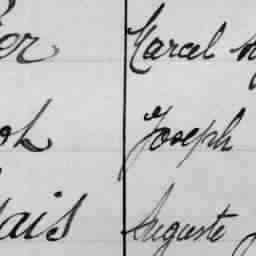 er Marcel
oh Joseph
ais Auguste